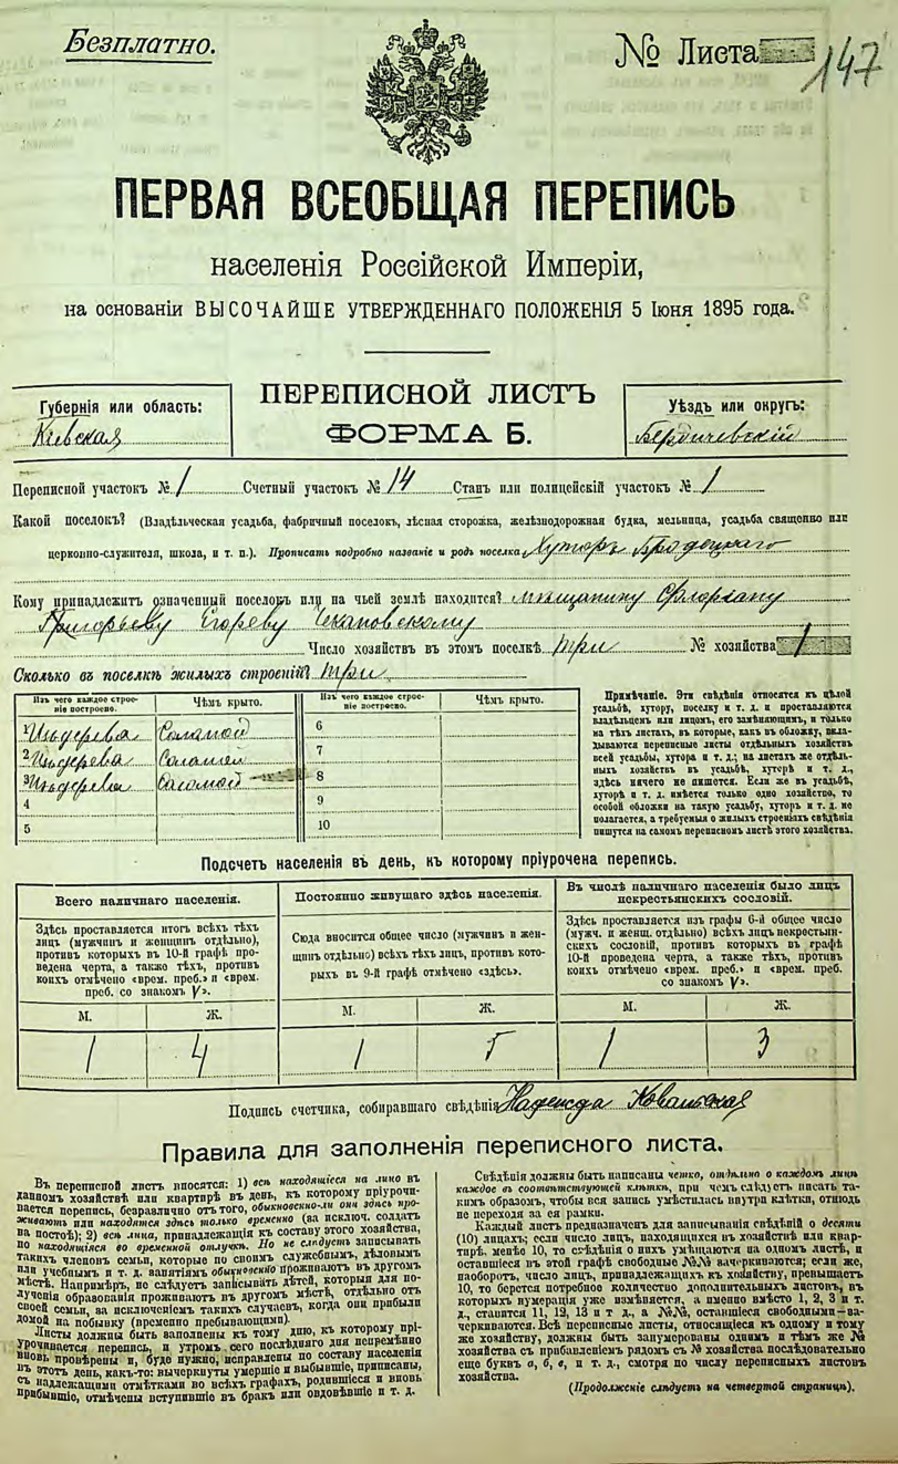 Безплатно.
№ Листа 147
ПЕРВАЯ ВСЕОБЩАЯ ПЕРЕПИСЬ
населенія Россійской Имперіи,
на основаніи ВЫСОЧАЙШЕ УТВЕРЖДЕННАГО ПОЛОЖЕНІЯ 5 Іюня 1895 года.
ПЕРЕПИСНОЙ ЛИСТЪ
ФОРМА Б.
Губернія или область:
Кіевская
Уѣздъ или округъ:
Бердичевскій
Переписной участокъ № 1 Счетный участокъ № 14 Станъ или полицейскій участокъ № 1
Какой поселокъ? (Владѣльческая усадьба, фабричный поселокъ, лѣсная сторожка, желѣзнодорожная будка, мельница, усадьба священно или
церковно-служителя, школа, и т. п.). Прописать подробно названіе и родъ поселка. Хуторъ Бродецкаго
Кому принадлежитъ означенный поселокъ или на чьей землѣ находится? мѣщанину Флоріану
Григорьеву Егореву Чехановскому
Число хозяйствъ въ этомъ поселкѣ три № хозяйства 1
Сколько въ поселкѣ жилыхъ строеній? три
Изъ чего каждое строе-
ніе построено.
Чѣмъ крыто.
Изъ чего каждое строе-
ніе построено.
Чѣмъ крыто.
1 Изъ дерева Соломой 6
2 Изъ дерева Соломой 7
3 Изъ дерева Соломой 8
4 9
5 10
Примѣчаніе. Эти свѣдѣнія относятся къ цѣлой
усадьбѣ, хутору, поселку и т. д. и проставляются
владѣльцемъ или лицомъ, его замѣняющимъ, и только
на тѣхъ листахъ, въ которые, какъ въ обложку, вкла-
дываются переписные листы отдѣльныхъ хозяйствъ
всей усадьбы, хутора и т. д.; на листахъ же отдѣль-
ныхъ хозяйствъ въ усадьбѣ, хуторѣ и т. д.,
здѣсь ничего не пишется. Если же въ усадьбѣ,
хуторѣ и т. д. имѣется только одно хозяйство, то
особой обложки на такую усадьбу, хуторъ и т. д. не
полагается, а требуемыя о жилыхъ строеньяхъ свѣдѣнія
пишутся на самомъ переписномъ листѣ этого хозяйства.
Подсчетъ населенія въ день, къ которому пріурочена перепись.
Всего наличнаго населенія.
Здѣсь проставляется итогъ всѣхъ тѣхъ
лицъ (мужчинъ и женщинъ отдѣльно),
противъ которыхъ въ 10-й графѣ про-
ведена черта, а также тѣхъ, противъ
коихъ отмѣчено «врем. преб.» и «врем.
преб. со знакомъ V».
Постоянно живущаго здѣсь населенія.
Сюда вносится общее число (мужчинъ и жен-
щинъ отдѣльно) всѣхъ тѣхъ лицъ, противъ кото-
рыхъ въ 9-й графѣ отмѣчено «здѣсь».
Въ числѣ наличнаго населенія было лицъ
некрестьянскихъ сословій.
Здѣсь проставляется изъ графы 6-й общее число
(мужч. и женщ. отдѣльно) всѣхъ лицъ некрестьян-
скихъ сословій, противъ которыхъ въ графѣ
10-й проведена черта, а также тѣхъ, противъ
коихъ отмѣчено «врем. преб.» и «врем. преб.
со знакомъ V».
М. Ж. М. Ж. М. Ж.
1 4 1 5 1 3
Подпись счетчика, собиравшаго свѣдѣнія Надежда Ковальская
Правила для заполненія переписного листа.
Въ переписной листъ вносятся: 1) всѣ находящіеся на лицо въ
данномъ хозяйствѣ или квартирѣ въ день, къ которому пріурочи-
вается перепись, безразлично отъ того, обыкновенно-ли они здѣсь про-
живаютъ или находятся здѣсь только временно (за исключ. солдатъ
на постоѣ); 2) всѣ лица, принадлежащія къ составу этого хозяйства,
но находящіяся во временной отлучкѣ. Но не слѣдуетъ записывать
такихъ членовъ семьи, которые по своимъ служебнымъ, дѣловымъ
или учебнымъ и т. д. занятіямъ обыкновенно проживаютъ въ другомъ
мѣстѣ. Напримѣръ, не слѣдуетъ записывать дѣтей, которыя для по-
лученія образованія проживаютъ въ другомъ мѣстѣ, отдѣльно отъ
своей семьи, за исключеніемъ такихъ случаевъ, когда они прибыли
домой на побывку (временно пребывающими).
Листы должны быть заполнены къ тому дню, къ которому прі-
урочивается перепись, и утромъ сего послѣдняго дня непремѣнно
вновь провѣрены и, буде нужно, исправлены по составу населенія
въ этотъ день, какъ-то: вычеркнуты умершіе и выбывшіе, приписаны,
съ надлежащими отмѣтками во всѣхъ графахъ, родившіеся и вновь
прибывшіе, отмѣчены вступившіе въ бракъ или овдовѣвшіе и т. д.
Свѣдѣнія должны быть написаны четко, отдѣльно о каждомъ лицѣ
каждое въ соотвѣтствующей клѣткѣ, при чемъ слѣдуетъ писать та-
кимъ образомъ, чтобы вся запись умѣстилась внутри клѣтки, отнюдь
не переходя за ея рамки.
Каждый листъ предназначенъ для записыванія свѣдѣній о десяти
(10) лицахъ; если число лицъ, находящихся въ хозяйствѣ или квар-
тирѣ, менѣе 10, то свѣдѣнія о нихъ умѣщаются на одномъ листѣ, и
оставшіеся въ этой графѣ свободные №№ зачеркиваются; если же,
наоборотъ, число лицъ, принадлежащихъ къ хозяйству, превышаетъ
10, то берется потребное количество дополнительныхъ листовъ, въ
которыхъ нумерація уже измѣняется, а именно вмѣсто 1, 2, 3 и т.
д., ставится 11, 12, 13 и т д., а №№, оставшіеся свободными—за-
черкиваются. Всѣ переписные листы, относящіеся къ одному и тому
же хозяйству, должны быть занумерованы однимъ и тѣмъ же №
хозяйства съ прибавленіемъ рядомъ съ № хозяйства послѣдовательно
еще буквъ а, б, в, и т. д., смотря по числу переписныхъ листовъ
хозяйства.
(Продолженіе слѣдуетъ на четвертой страницѣ).